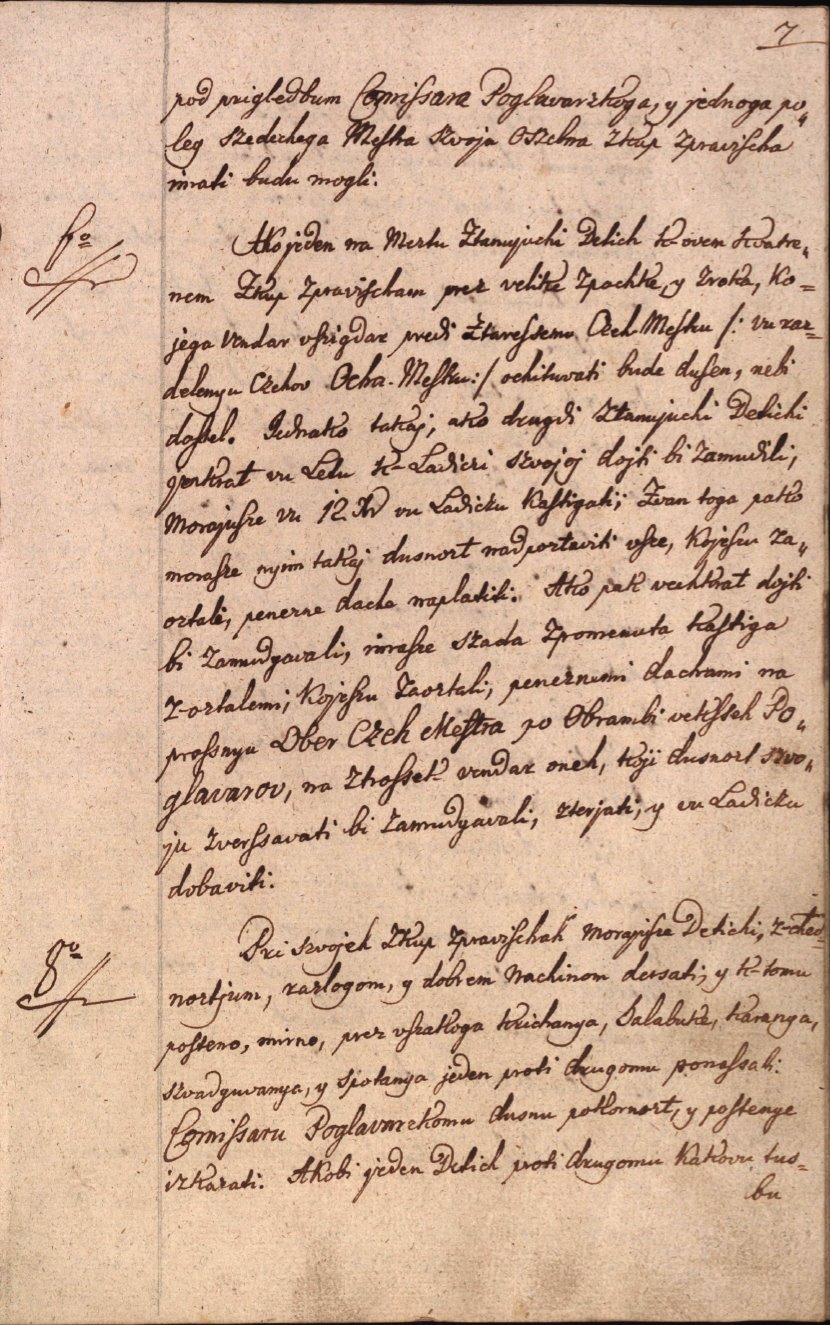 7
pod prigledbum Comissara Poglavarzkoga, y jednoga po„
leg szedechega Mestra szvoja oszebna zkup zpravischa
imati budu mogli.
6o
Ako jeden na Mertu ztanujuchi Detich k-ovem kvatre„
nem Zkup Zpravischam prez velike zpachke, y zroka, Ko-
jega vendar vszigdar predi Ztaressemu Czeh Mestru /: vu raz-
delenyu Czehov Ocha-Mestru :/ ochituvati bude dusen, nebi
dossel. Jednako takaj, ako drugdi ztanujuchi Detichi
perkrat vu Letu k-Ladici szvojoj dojti bi zamudili,
Morajusze vu 12. Xr vu Ladicku Kastigati; Zvan toga pako
morasze nyim takaj dusnozt nadpoztaviti vsze, Kojeszu za„
oztali, penezne dacha naplatiti. Ako pak vechkrat dojti
bi zamudyavali, imasze szada zpomenuta kastiga
z-oztalemi, Kojeszu zaoztali, peneznemi dachami na
prossnyu Ober Czeh Mestra po Obrambi vetisseh Po„
glavarov, na ztrossek vendar oneh, koji dusnozt szvo„
ju zverssavati bi zamudyavali, zterjati, y vu Ladicku
dobaviti.
8o
Pri szvojeh Zkup zpravischah morajusze Detichi, z-ched-
noztjum, razlogom, y dobrem nachinom dersati, y k-tomu
posteno, mirno, prez vszakoga krichanya, Galabuke, karanya,
szvadyuvanya, y spotanya jeden proti drugomu ponassati.
Comissaru Poglavarzkomu dusnu pokornozt, y postenye
izkazati. Akobi jeden Detich proti drugomu kakovu tus-
bu